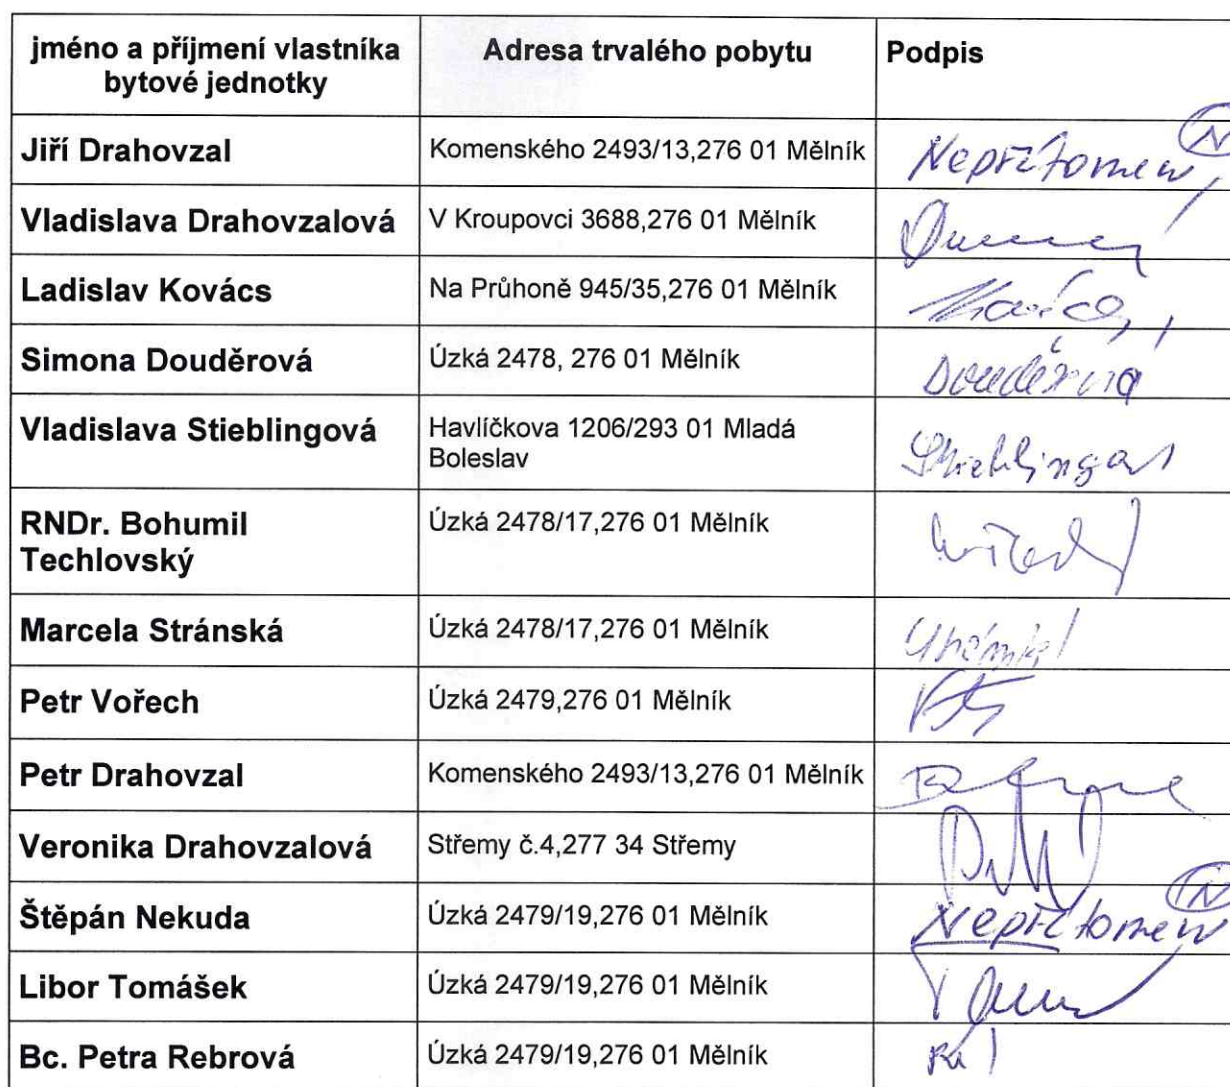 jméno a příjmení vlastníka
bytové jednotky
Adresa trvalého pobytu
Podpis
Jiří Drahovzal
Komenského 2493/13,276 01 Mělník
Nepřítomen, N
Vladislava Drahovzalová
V Kroupovci 3688,276 01 Mělník
Ladislav Kovács
Na Průhoně 945/35,276 01 Mělník
Simona Douděrová
Úzká 2478, 276 01 Mělník
Vladislava Stieblingová
Havlíčkova 1206/293 01 Mladá
Boleslav
RNDr. Bohumil
Techlovský
Úzká 2478/17,276 01 Mělník
Marcela Stránská
Úzká 2478/17,276 01 Mělník
Petr Vořech
Úzká 2479,276 01 Mělník
Petr Drahovzal
Komenského 2493/13,276 01 Mělník
Veronika Drahovzalová
Střemy č.4,277 34 Střemy
Štěpán Nekuda
Úzká 2479/19,276 01 Mělník
Nepřítomen N
Libor Tomášek
Úzká 2479/19,276 01 Mělník
Bc. Petra Rebrová
Úzká 2479/19,276 01 Mělník